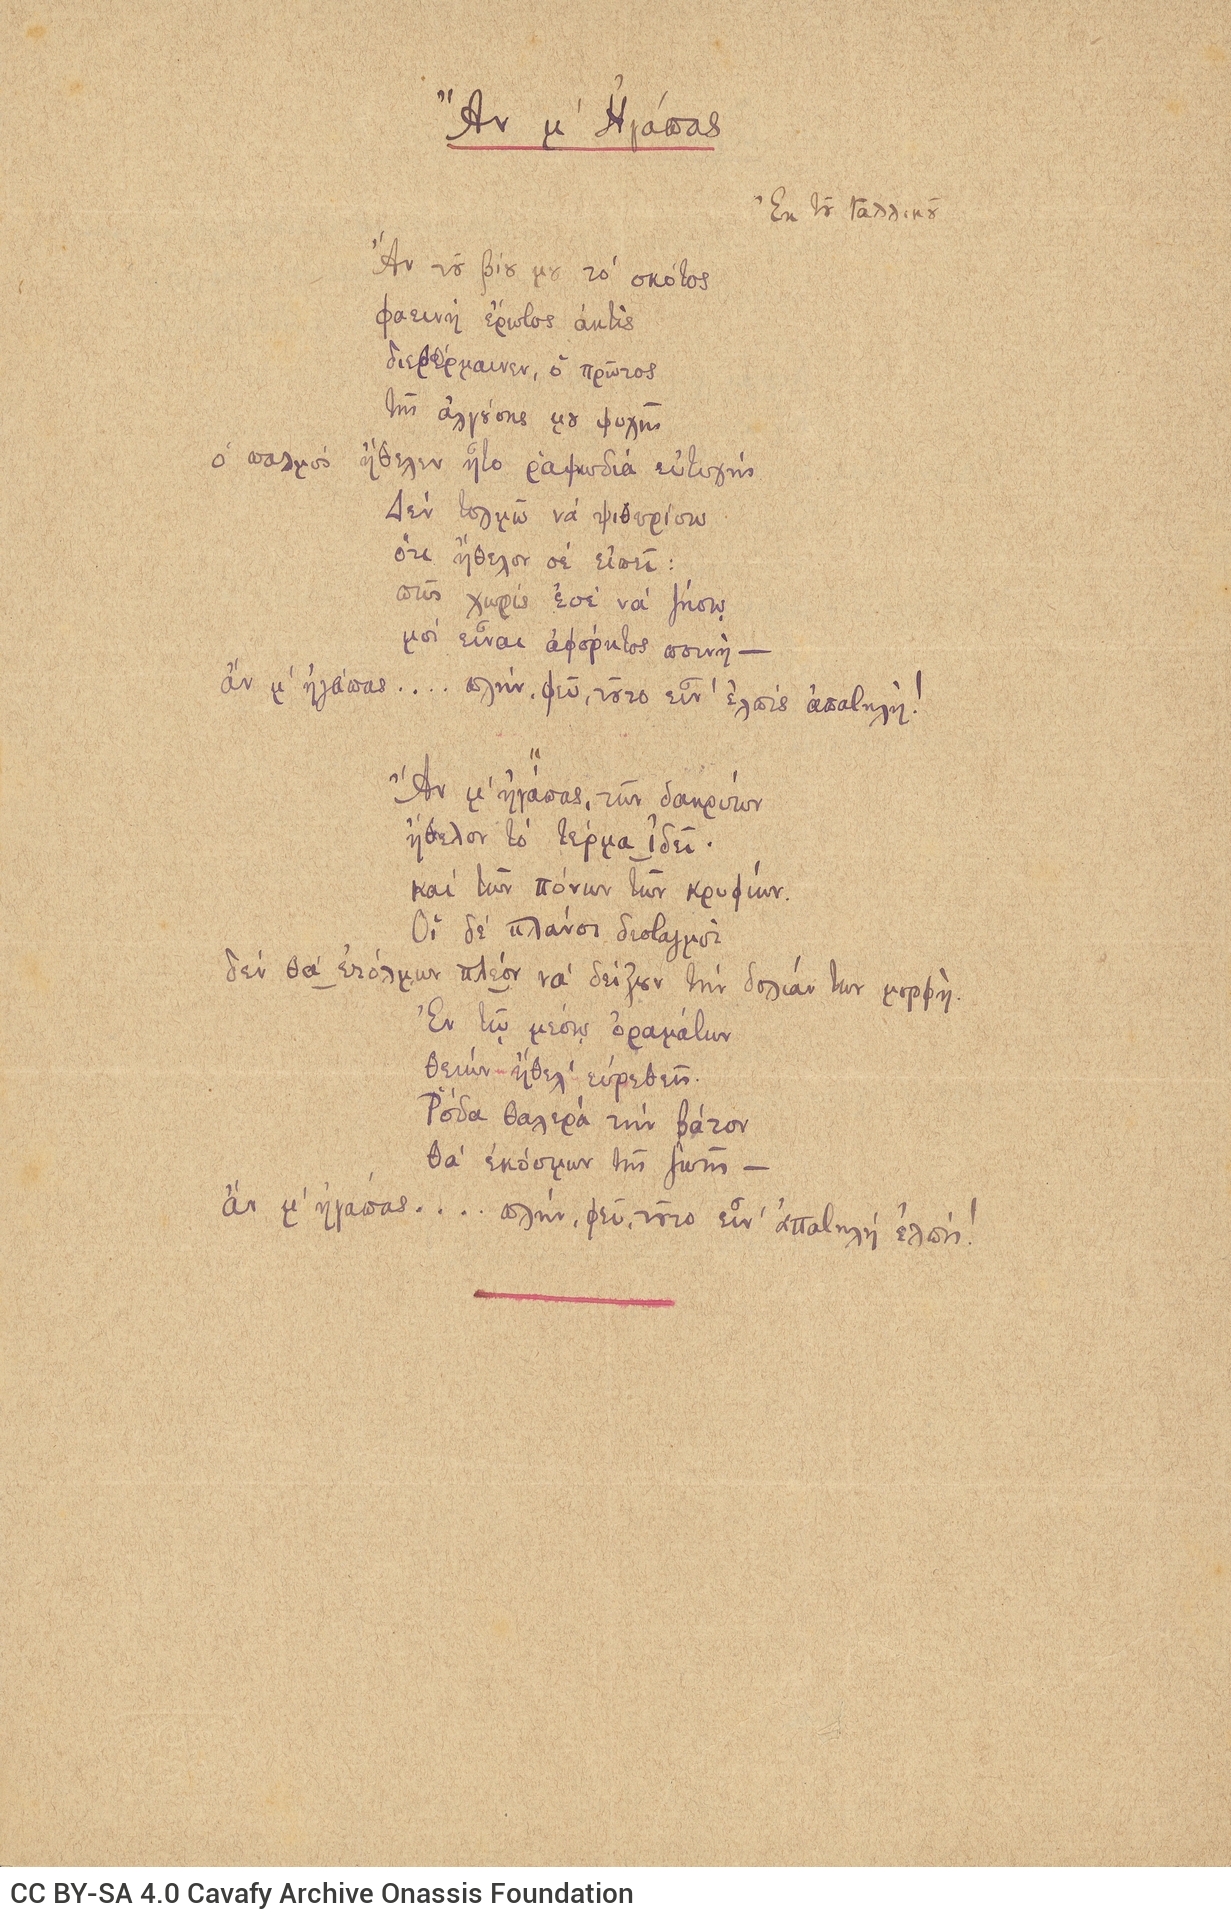 Ἂν μ' Ἠγάπας
Ἐκ τοῦ Γαλλικοῦ
Ἂν τοῦ βίου μου τὸ σκότος
φαεινὴ ἔρωτος ἀκτὶς
διεθέρμαινεν, ὁ πρῶτος
τῆς ἀλγούσης μου ψυχῆς
ὁ παλμὸς ἤθελεν ἦτο ῥαψωδιὰ εὐτυχής.
Δὲν τολμῶ νὰ ψιθυρίσω
ὅτι ἤθελον σὲ εἰπεῖ:
πῶς χωρὶς ἐσὲ νὰ ζήσω
μοὶ εἶναι ἀφόρητος ποινὴ —
ἂν μ' ἠγάπας.... πλήν, φεῦ, τοῦτο εἶν' ἐλπὶς ἀπατηλή!
Ἂν μ' ἠγάπας, τῶν δακρύων
ἤθελον τὸ τέρμα ἰδεῖ·
καὶ τῶν πόνων τῶν κρυφίων.
Οἱ δὲ πλάνοι δισταγμοὶ
δὲν θὰ ἐτόλμων πλέον νὰ δείξουν τὴν δολίαν των μορφή.
Ἐν τῷ μέσῳ ὁραμάτων
θείων ἤθελ' εὑρεθεῖς.
Ῥόδα θαλερὰ τὴν βάτον
θὰ ἐκόσμων τῆς ζωῆς —
ἂν μ' ἠγάπας.... πλήν, φεῦ, τοῦτο εἶν' ἀπατηλὴ ἐλπίς!
CC BY-SA 4.0 Cavafy Archive Onassis Foundation